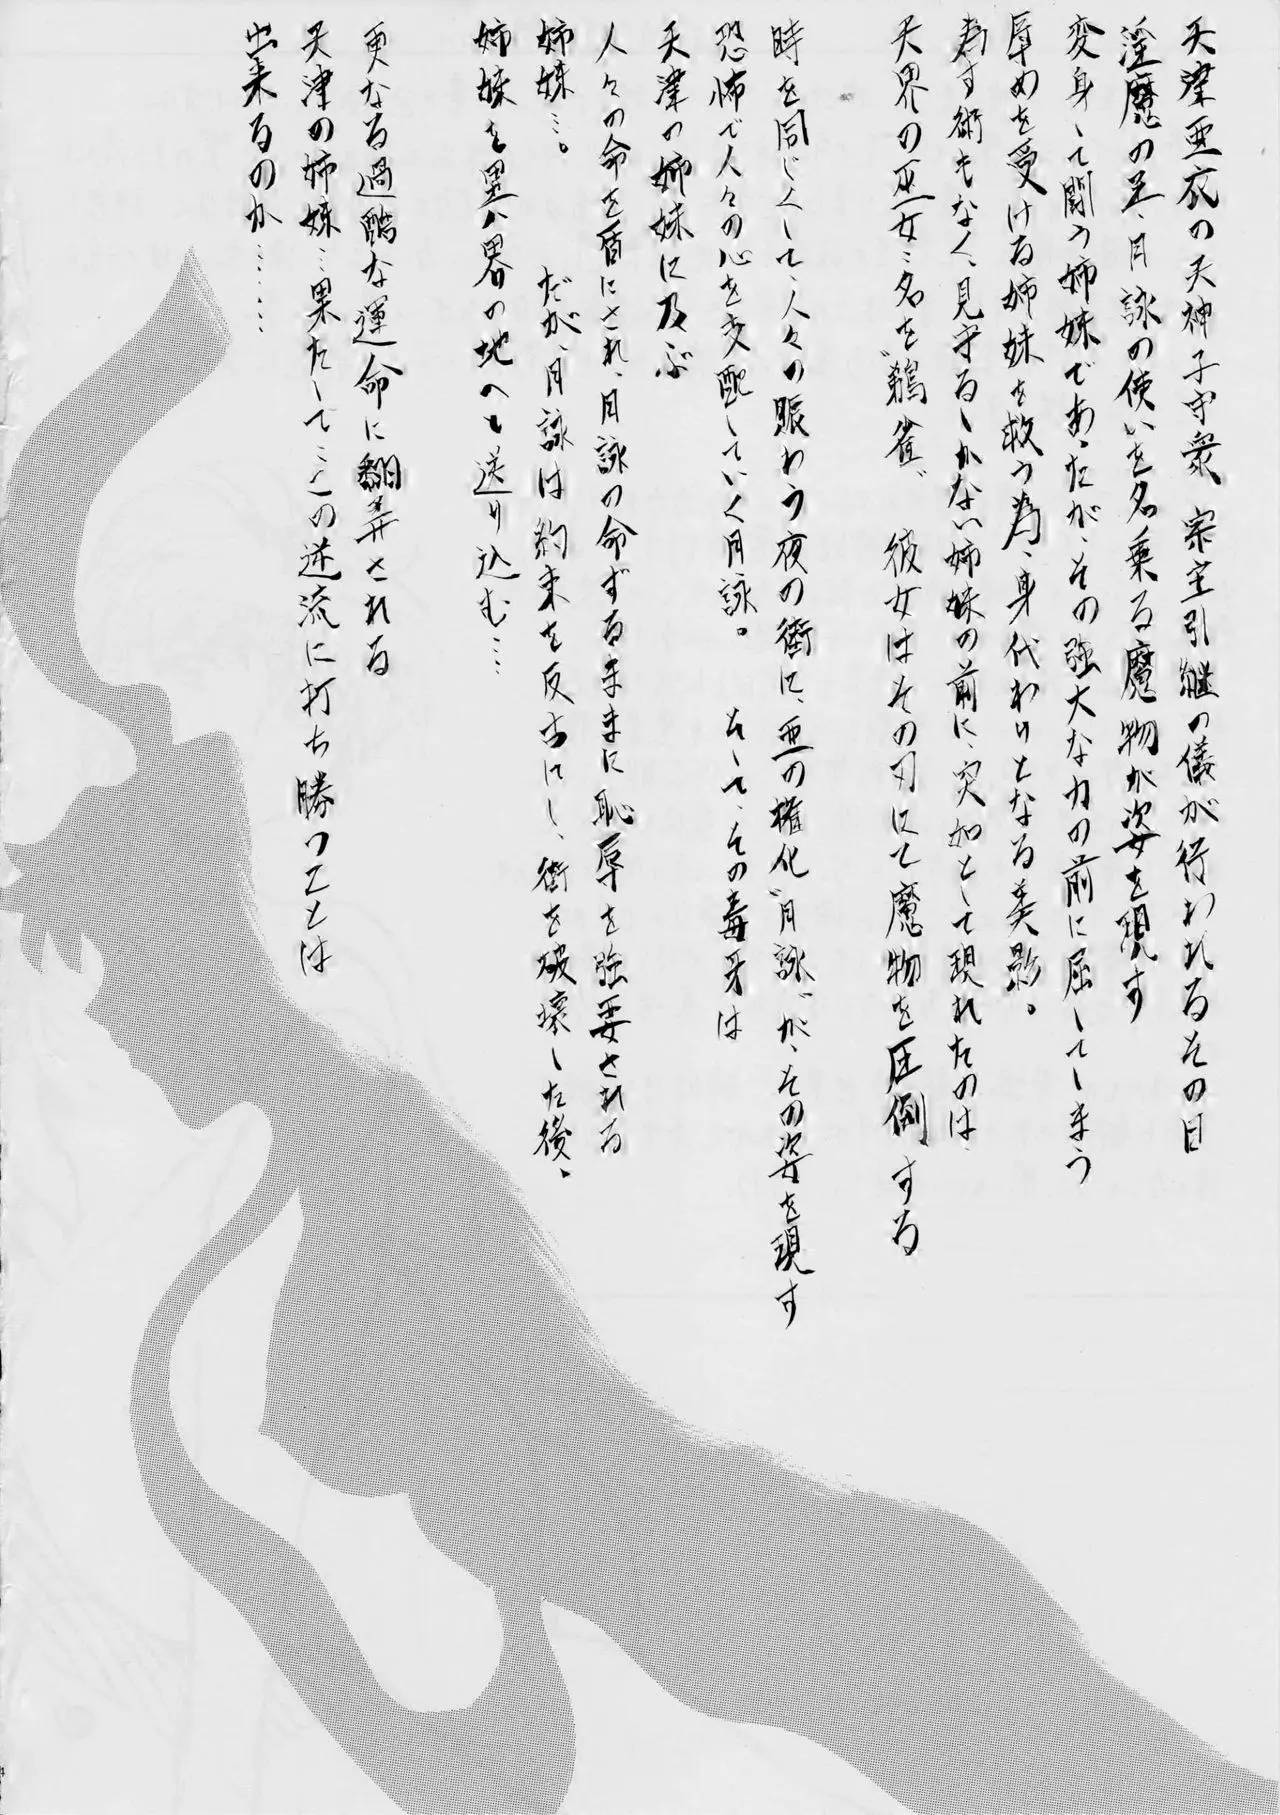 天津亜衣の天神子守衆 宗主引継の儀が行われるその日
淫魔の王、月詠の使いを名乗る魔物が姿を現す
変身して闘う姉妹であったが、その強大な力の前に屈してしまう
辱めを受ける姉妹を救う為、身代わりとなる美影。
為す術もなく、見守るしかない姉妹の前に、突如として現れたのは、
天界の巫女…名を〝鶺雀〟 彼女はその刃にて魔物を圧倒する
時を同じくして、人々の賑わう夜の街に、悪の権化〝月詠〟が、その姿を現す
恐怖で人々の心を支配していく月詠。 そして、その毒牙は
天津の姉妹に及ぶ
人々の命を盾にされ、月詠の命ずるままに恥辱を強要される
姉妹…。 だが、月詠は約束を反古にし、街を破壊した後、
姉妹を異界の地へと送り込む…
更なる過酷な運命に翻弄される
天津の姉妹…果たして…この逆流に打ち勝つことは
出来るのか………